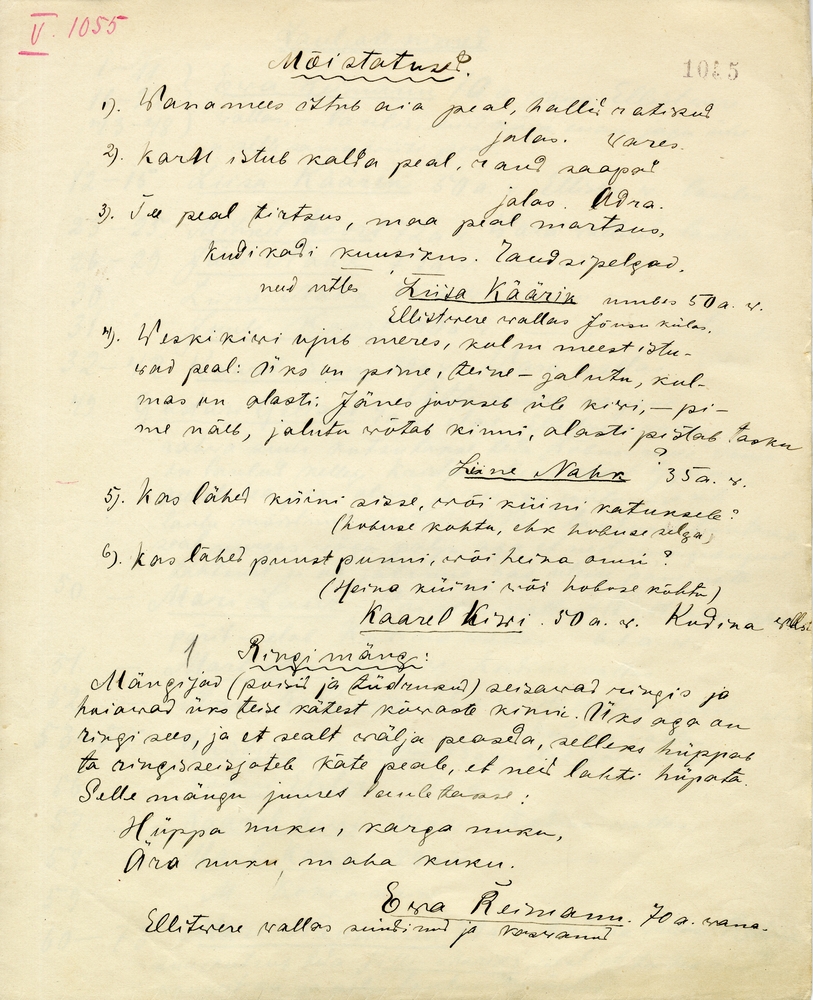 V. 1055
Mõistatused.
1055
1). Wanamees istub aia peal, hallid ratisud
jalas. Wares.
2). Karu istub kalda peal, raud saapad
jalas. Adra.
3). Tee peal tirtsus, maa peal martsus,
kudi kadi kuusikus. Raudsipelgad.
neid ütles Liisa Käärik umbes 50 a. w.
Ellistwere wallas Jõusu külas.
4). Weskikiwi ujub meres, kolm meest istu-
wad peal: Üks on pime, teine – jalutu, kol-
mas on alasti: Jänes jookseb üle kiwi, – pi-
me näeb, jalutu wõtab kinni, alasti pistab tasku
?
Liine Nahk 35 a. w.
5). Kas lähed küüni sisse, wõi küüni katuksele?
(hobuse kõhtu, ehk hobuse selga)
6). Kas lähed puust punni, wõi heina onni?
(Heina küüni wõi hobuse kõhtu)
Kaarel Kiwi. 50 a. w. Kudina wallas
1 Ringimäng:
Mängijad (poisid ja tüdrukud) seisawad ringis ja
hoiawad üks teise kätest kõwaste kinni. Üks aga on
ringi sees, ja et sealt wälja peaseda, selleks hüppab
ta ringisseisjateb käte peale, et neid lahti hüpata.
Selle mängu juures lauletakse:
Hüppa nuku, karga nuku,
Ära nuku maha kuku.
Ewa Reimann. 70 a. wana.
Ellitwere wallas sündinud ja kaswanud